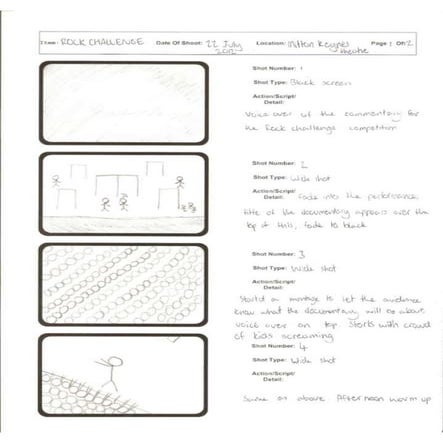 Item: ROCK CHALLENGE Date Of Shoot: 22 July 2012 Location: Milton Keynes theatre Page: 1 Of: 2
Shot Number: 1
Shot Type: Black screen
Action/Script/
Detail:
Voice over of the commentary for
the Rock challenge
competition
Shot Number: 2
Shot Type: Wide shot
Action/Script/
Detail: Fade into the performance
title of the documentary appears over the
top of this, fade to black
Shot Number: 3
Shot Type: Wide shot
Action/Script/
Detail:
a montage to let the audience
know what the documentary will be about
voice over on top. Starts with crowd
of kids screaming
Shot Number: 4
Shot Type: Wide shot
Action/Script/
Detail:
Same as above. Afternoon warm up